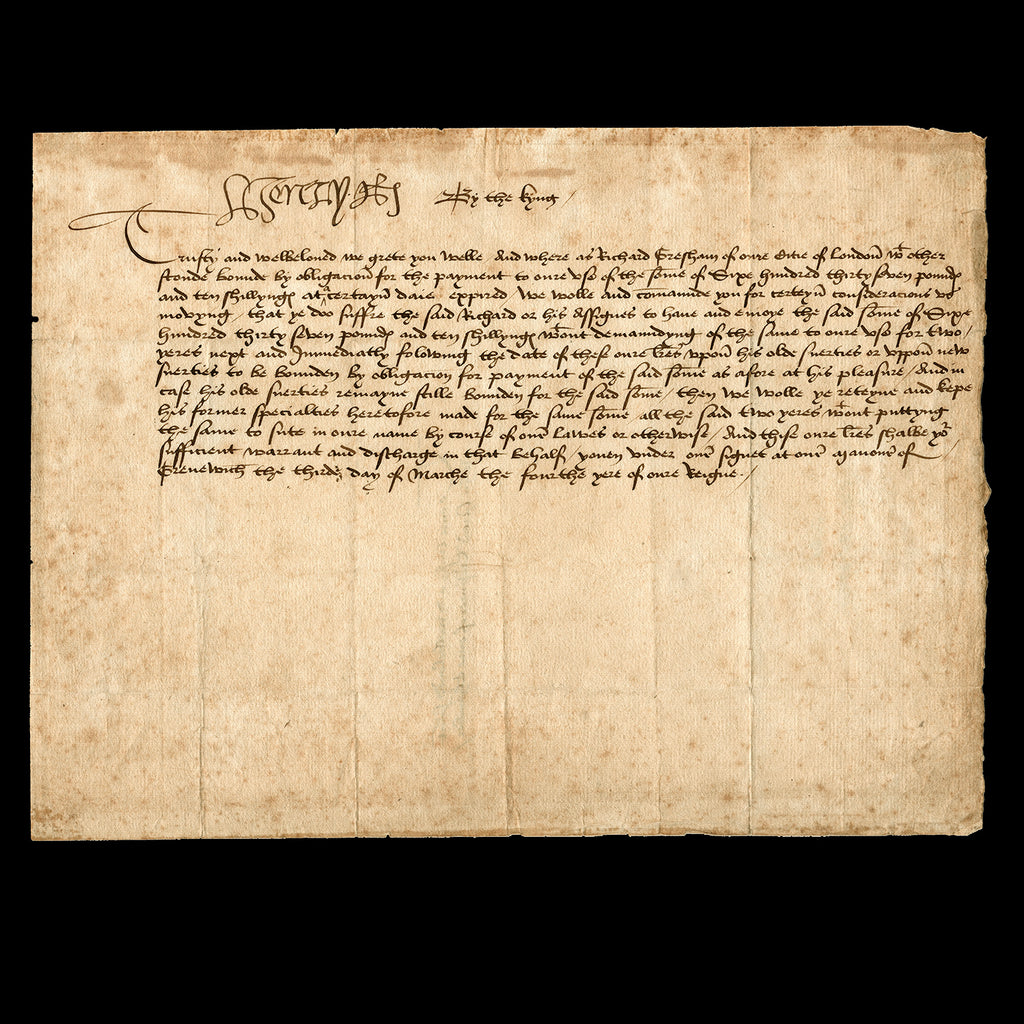 Henry R By the kyng /
Trusty and welbeloved we grete you welle And where as Richard Gresham of oure Citie of London wt other
stonde bounde by obligacion for the payment to oure use of the some of Sixe hundred thirty seven poundes
and ten shillynges at a certayn daie expired / we wolle and comaunde you for certeyn consideracions us
movyng / that ye doo suffre the said Richard or his Assignes to have and enioye the said some of Sixe
hundred thirty seven poundes and ten shillynges wtout demaundyng of the same to oure use for two /
yeres next and Immediatly folowing the date of these oure lres uppon his olde suerties or uppon new
suerties to be bounden by obligacion for payment of the said some as afore at his pleasure / And in
case his olde suerties remayne stille bounden for the said some / then we wolle ye reteyne and kepe
his former specialties heretofore made for the same some all the said two yeres wtout puttyng
the same to sute in oure name by course of our Lawes or otherwise / And thise oure lres shalbe yor
sufficient warrant and discharge in that behalf / yoven under our signet at our Manour of /
Grenewich the thirde day of Marche the fourthe yere of oure Reigne . /